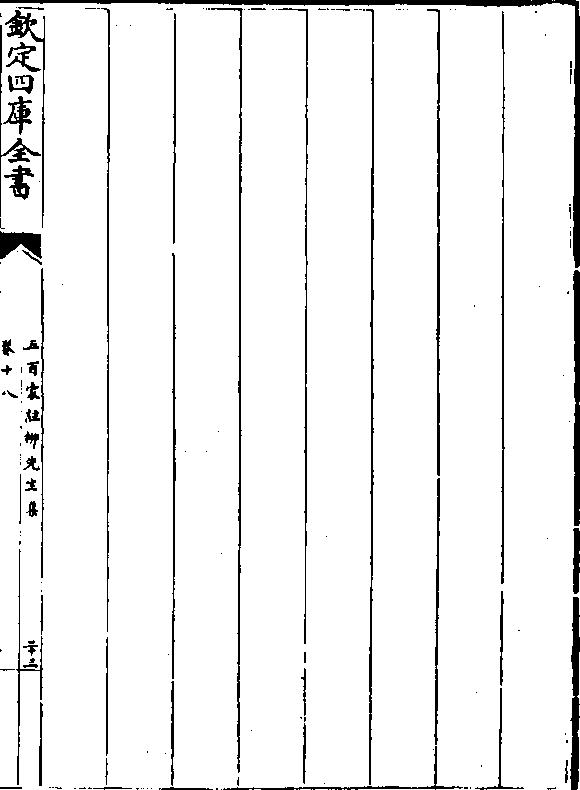 欽定四庫全書
五百家註柳先生集
卷十八
二十三